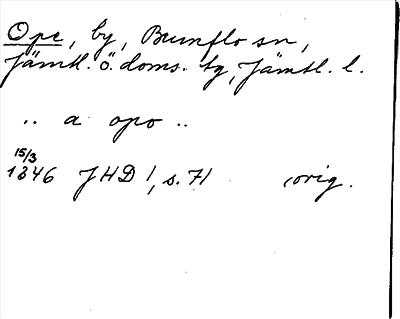 Ope, by, Brunflo sn,
Jämtl. ö. doms. tg, Jämtl. l.
.. a opo ..
15/3
1346 JHD 1, s. 71 orig.